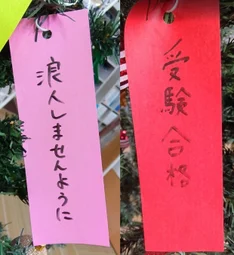 浪人しませんように
受験合格